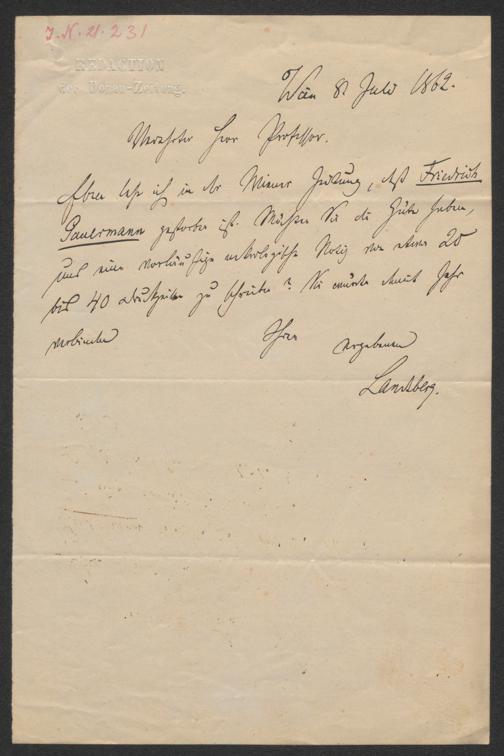 J.N. 21.231
REDACTION
der Donau-Zeitung.
Wien 8. Juli 1862.
Verehrter Herr Professor.
Eben lese ich in der Wiener Zeitung, daß Friedrich
Gauermann gestorben ist. Möchten Sie die Güte haben,
uns eine vorläufige nekrologische Notiz von etwa 20
bis 40 Druckzeilen zu schreiben? Sie würden damit sehr
verbinden
Ihren ergebenen
Landsberg.